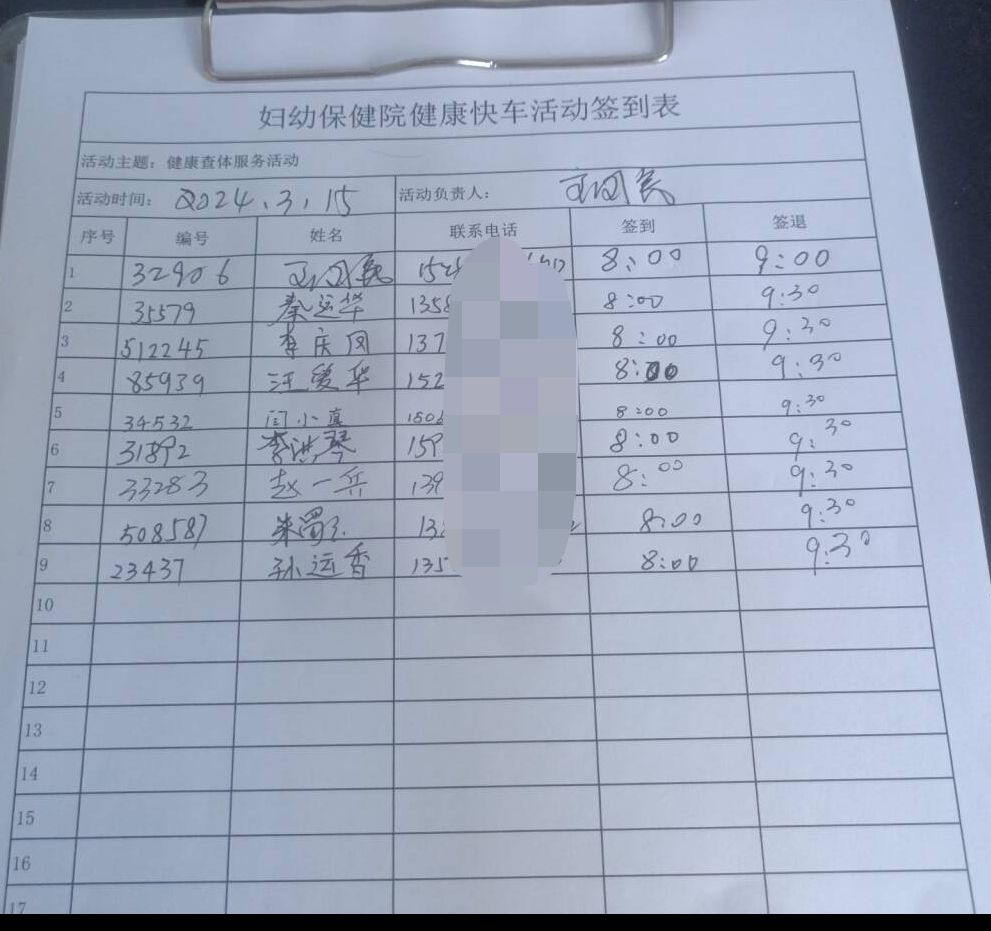 妇幼保健院健康快车活动签到表
活动主题：健康查体服务活动
活动时间： 2024.3.15 活动负责人：
序号 编号 姓名 联系电话 签到 签退
1 32906 8:00 9:00
2 35579 秦运华 1358 8:00 9:30
3 512245 李庆凤 137 8:00 9:30
4 85939 汪爱华 152 8:00 9:30
5 34532 闫小真 150 8:00 9:30
6 31892 李洪琴 159 8:00 9:30
7 33283 赵一兵 139 8:00 9:30
8 508587 13 8:00 9:30
9 23437 孙运香 135 8:00 9:30
10
11
12
13
14
15
16
17